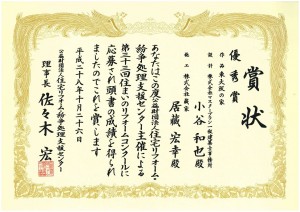 賞状
優秀賞
作品 東大阪の家
設計 株式会社マスタープラン一級建築士事務所
小谷和也殿
施工 株式会社蔵家
居藏宏幸殿
あなたはこの度公益財団法人住宅リフォーム・
紛争処理支援センター主催による
第三十三回住まいのリフォームコンクールに
応募され頭書の成績を得られ
ましたのでこれを賞します
平成二十八年十月二十六日
公益財団法人住宅リフォーム・紛争処理支援センター
理事長 佐々木宏